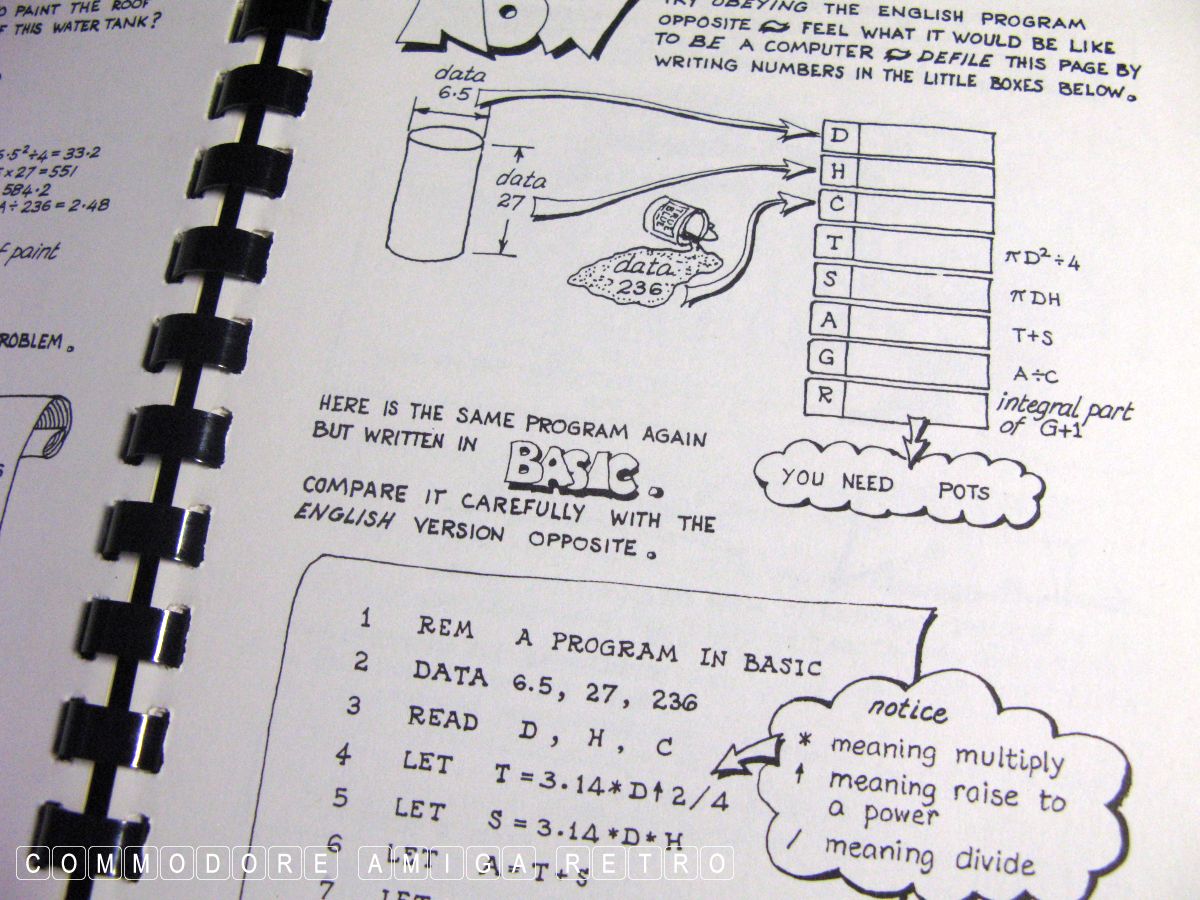 O PAINT THE ROOF
F THIS WATER TANK?
6·5²÷4 = 33·2
× 27 = 551
584·2
A÷ 236 = 2·48
f paint
ROBLEM.
NOW
TRY OBEYING THE ENGLISH PROGRAM
OPPOSITE FEEL WHAT IT WOULD BE LIKE
TO BE A COMPUTER DEFILE THIS PAGE BY
WRITING NUMBERS IN THE LITTLE BOXES BELOW.
data
6·5
data
27
TRUE
BLUE
data
236
D
H
C
T
πD²÷4
S
πDH
A
T+S
G
A÷C
R
integral part
of G+1
YOU NEED POTS
HERE IS THE SAME PROGRAM AGAIN
BUT WRITTEN IN BASIC.
COMPARE IT CAREFULLY WITH THE
ENGLISH VERSION OPPOSITE.
1 REM A PROGRAM IN BASIC
2 DATA 6.5, 27, 236
3 READ D, H, C
4 LET T=3.14*D↑2/4
5 LET S=3.14*D*H
6 LET A=T+S
7 LET
notice
* meaning multiply
↑ meaning raise to
a power
/ meaning divide
COMMODORE AMIGA RETRO